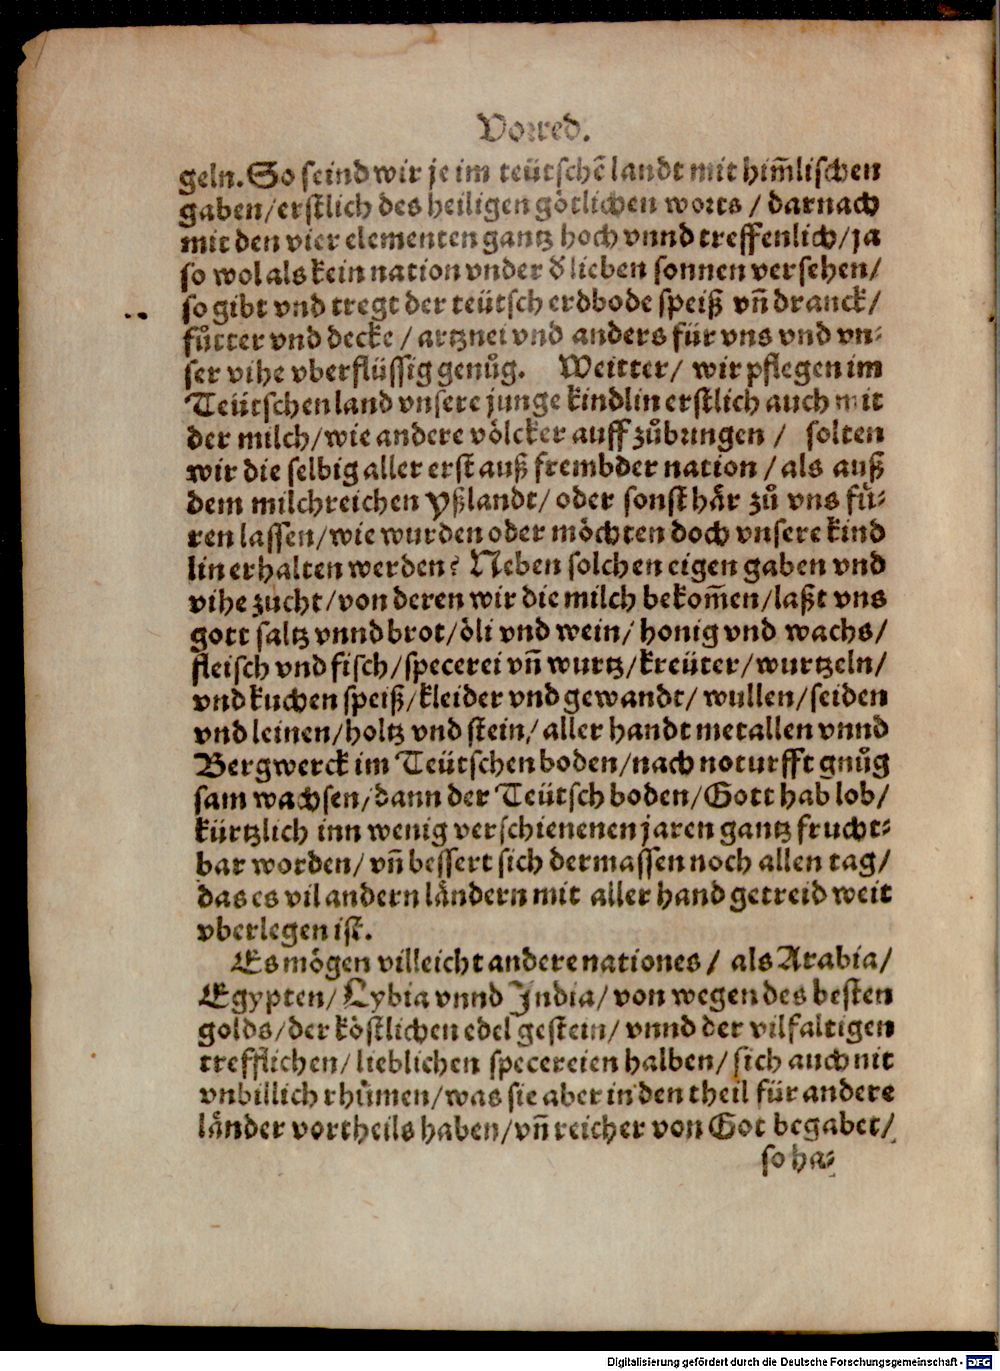 Vorred.
geln. So seind wir je im teütschē landt mit him̃lischen
gaben/ erstlich des heiligen götlichen worts / darnach
mit den vier elementen gantz hoch vnnd treffenlich/ ja
so wol als kein nation vnder d̕ lieben sonnen versehen/
so gibt vnd tregt der teütsch erdbode speiß vñ dranck/
fůtter vnd decke / artznei vnd anders für vns vnd vn-
ser vihe vberflüssig genůg. Weitter/ wir pflegen im
Teütschen land vnsere junge kindlin erstlich auch mit
der milch/ wie andere völcker auff zůbringen / solten
wir die selbig aller erst auß frembder nation / als auß
dem milchreichen Yßlandt/ oder sonst här zů vns fü-
ren lassen/ wie wurden oder möchten doch vnsere kind
lin erhalten werden? Neben solchen eigen gaben vnd
vihe zucht/ von deren wir die milch bekom̃en/ laßt vns
gott saltz vnnd brot/ öli vnd wein/ honig vnd wachs/
fleisch vnd fisch/ specerei vñ wurtz/ kreüter/ wurtzeln/
vnd kuchen speiß/ kleider vnd gewandt/ wullen/ seiden
vnd leinen/ holtz vnd stein/ aller handt metallen vnnd
Bergwerck im Teütschen boden/ nach noturfft gnůg
sam wachsen/ dann der Teütsch boden/ Gott hab lob/
kürtzlich inn wenig verschienenen jaren gantz frucht-
bar worden/ vñ bessert sich dermassen noch allen tag/
das es vil andern ländern mit aller hand getreid weit
vberlegen ist.
Es mögen villeicht andere nationes / als Arabia/
Egypten/ Lybia vnnd India/ von wegen des besten
golds/ der köstlichen edel gestein/ vnnd der vilfaltigen
trefflichen/ lieblichen specereien halben/ sich auch nit
vnbillich rhůmen/ was sie aber in den theil für andere
länder vortheils haben/ vñ reicher von Got begabet/
so ha-
Digitalisierung gefördert durch die Deutsche Forschungsgemeinschaft - DFG